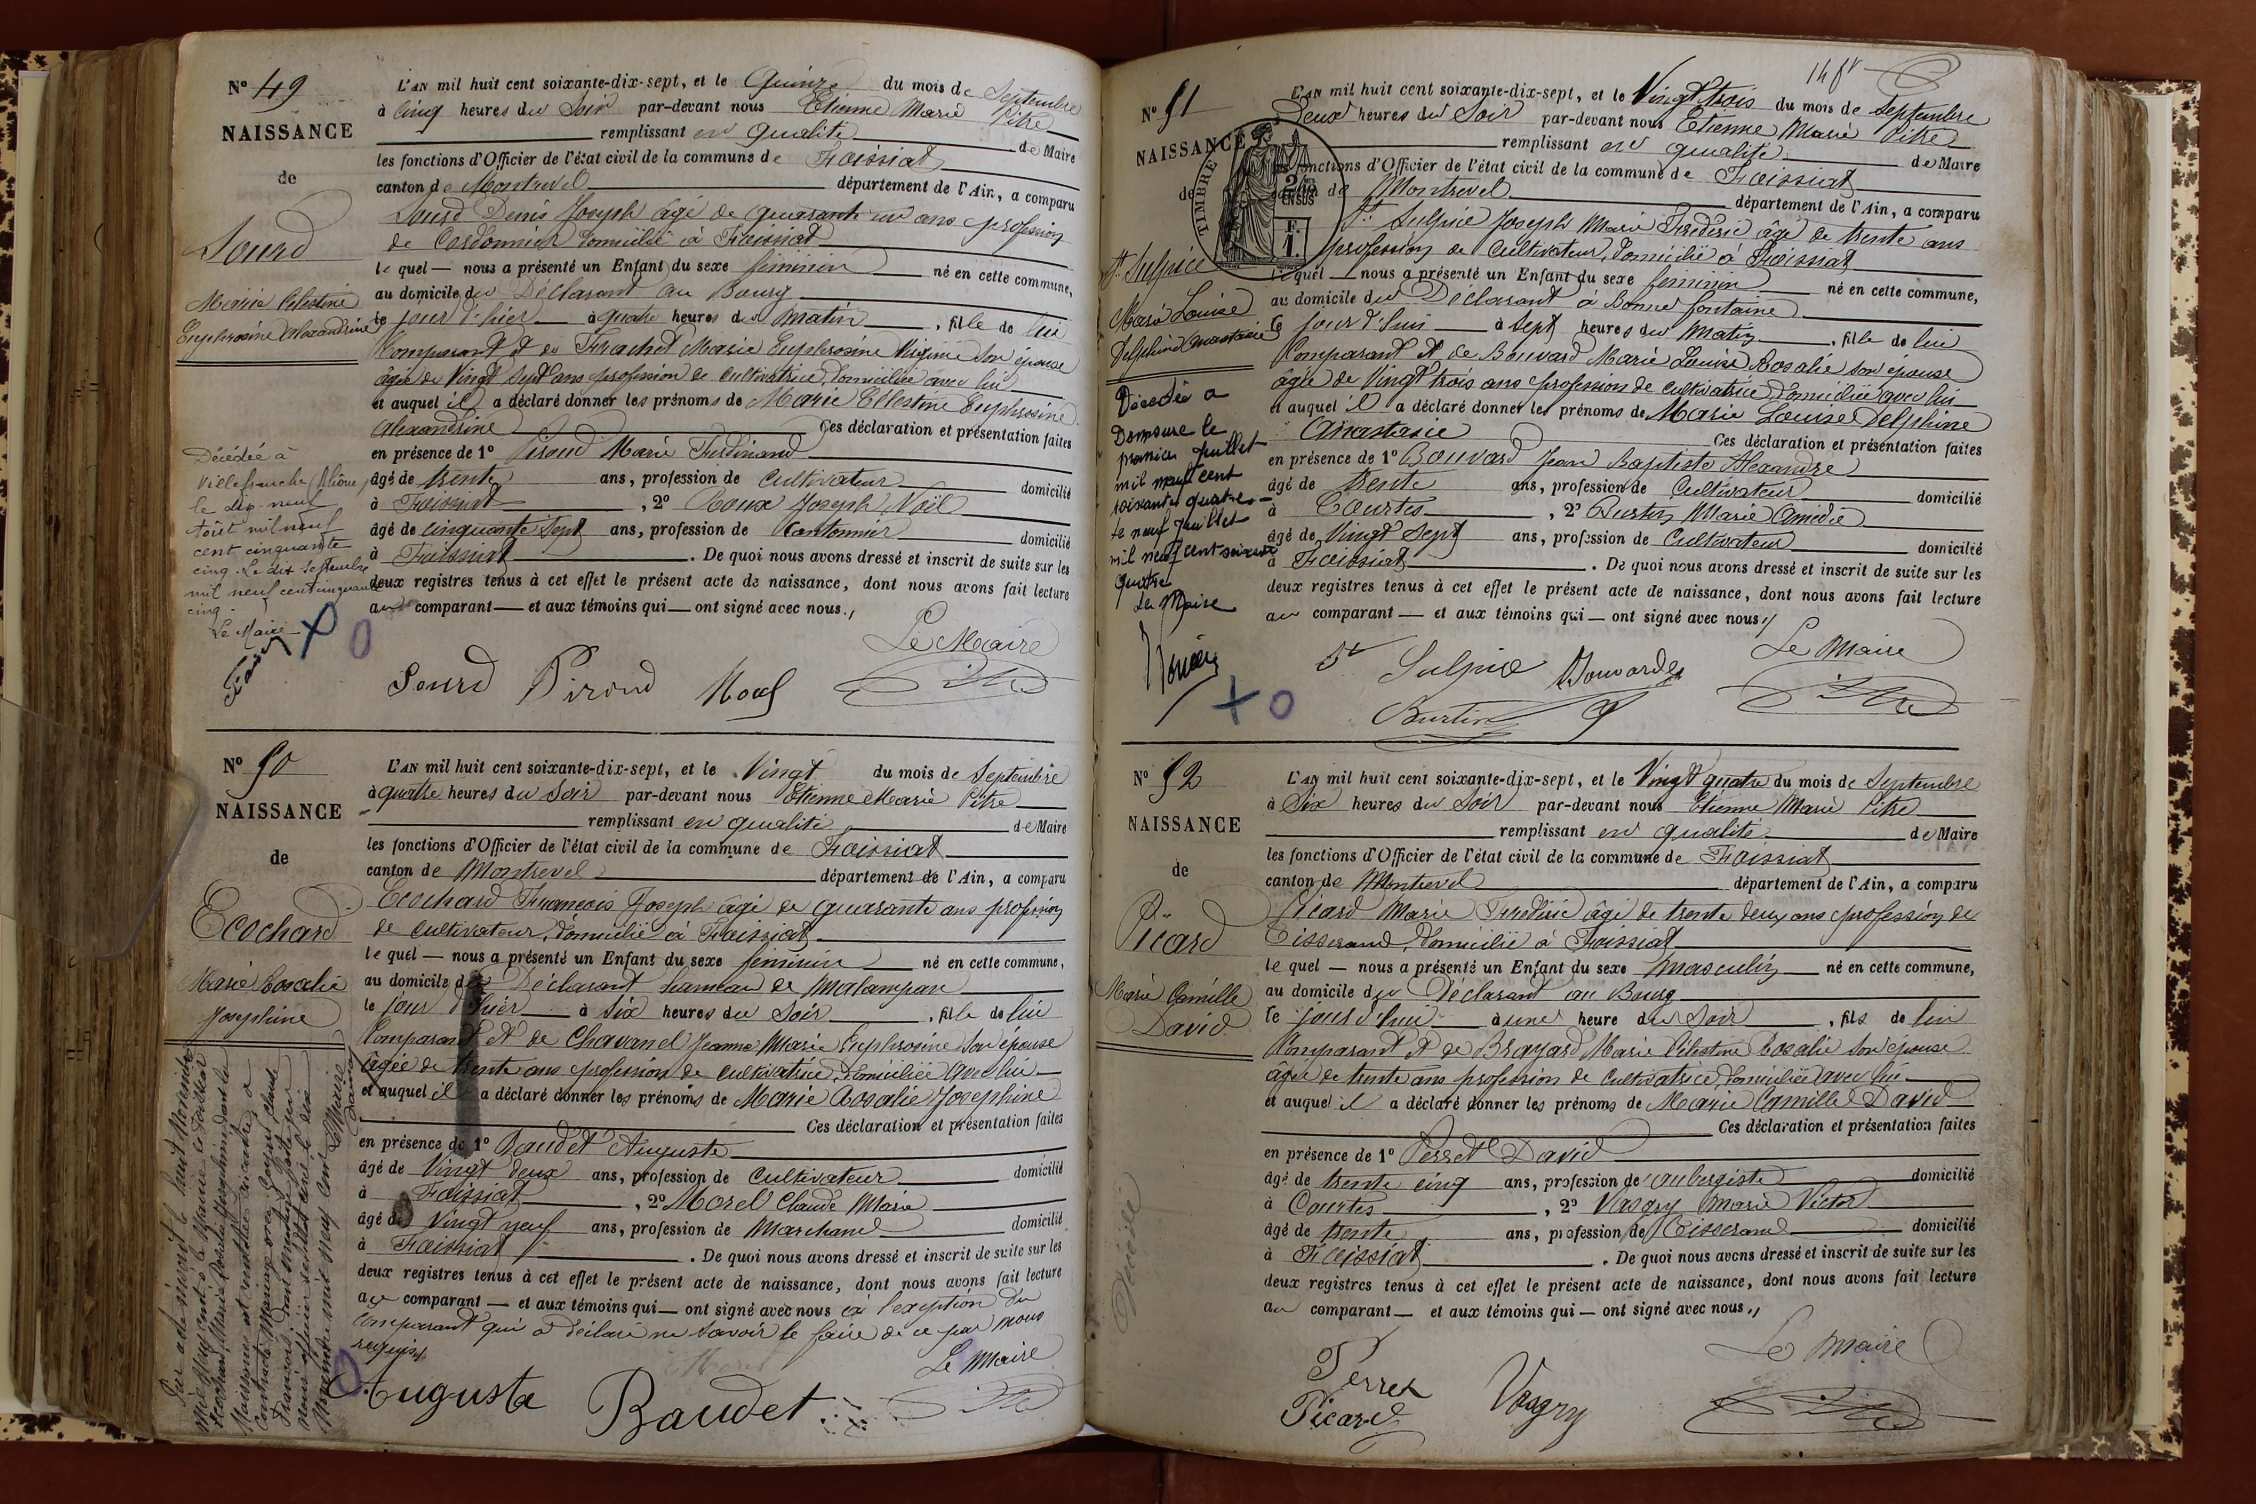 N° 49
NAISSANCE
de
Sourd
Marie Célestine
Euphrosine Alexandrine
L'AN mil huit cent soixante-dix-sept, et le Quinze du mois de Septembre
à Cinq heures du Soir par-devant nous Etienne Marie Pitre
remplissant en qualité de Maire
les fonctions d'Officier de l'état civil de la commune de Foissiat
canton de Montrevel département de l'Ain, a comparu
Sourd Denis Joseph âgé de quarante un ans profession
de Cordonnier domicilié à Foissiat
le quel — nous a présenté un Enfant du sexe féminin né en cette commune,
au domicile du Déclarant au Bourg
le jour d'hier à quatre heures du matin, fille de lui
Comparant et de Frachet Marie Euphrosine Virginie son épouse
âgée de Vingt sept ans profession de cultivatrice, domiciliée avec lui
et auquel il a déclaré donner les prénoms de Marie Célestine Euphrosine
Alexandrine Ces déclaration et présentation faites
en présence de 1° Piroud Marie Ferdinand
âgé de trente ans, profession de Cultivateur domicilié
à Foissiat, 2° Roux Joseph Noël
âgé de cinquante sept ans, profession de Cantonnier domicilié
à Foissiat. De quoi nous avons dressé et inscrit de suite sur les
deux registres tenus à cet effet le présent acte de naissance, dont nous avons fait lecture
au comparant — et aux témoins qui — ont signé avec nous.
Le Maire
Sourd Piroud
Décédée à
Villefranche (Rhône)
le dix-neuf
Août mil neuf
cent cinquante
cinq. Le dix Septembre
mil neuf cent cinquante
cinq.
Le Maire
N° 50
NAISSANCE
de
Ecochard
Marie Rosalie
Joséphine
L'AN mil huit cent soixante-dix-sept, et le Vingt du mois de Septembre
à quatre heures du Soir par-devant nous Etienne Marie Pitre
remplissant en qualité de Maire
les fonctions d'Officier de l'état civil de la commune de Foissiat
canton de Montrevel département de l'Ain, a comparu
Ecochard François Joseph âgé de quarante ans profession
de cultivateur, domicilié à Foissiat
le quel — nous a présenté un Enfant du sexe féminin né en cette commune,
au domicile du Déclarant hameau de Malampare
le jour d'hier à Six heures du Soir, fille de lui
Comparant et de Chavanel Jeanne Marie Euphrosine son épouse
âgée de trente ans profession de cultivatrice, domiciliée avec lui
et auquel il a déclaré donner les prénoms de Marie Rosalie Joséphine
Ces déclaration et présentation faites
en présence de 1° Baudet Auguste
âgé de Vingt deux ans, profession de Cultivateur domicilié
à Foissiat, 2° Morel Claude Marie
âgé de Vingt neuf ans, profession de Marchand domicilié
à Foissiat. De quoi nous avons dressé et inscrit de suite sur les
deux registres tenus à cet effet le présent acte de naissance, dont nous avons fait lecture
au comparant — et aux témoins qui — ont signé avec nous à l'exception du
comparant qui a déclaré ne savoir le faire de ce par nous
requis.
Le Maire
Auguste Baudet
N° 51
NAISSANCE
de
St. Sulpice
Marie Louise
Delphine Anastasie
TIMBRE
L'AN mil huit cent soixante-dix-sept, et le Vingt trois du mois de Septembre
Deux heures du Soir par-devant nous Etienne Marie Pitre
remplissant en qualité de Maire
fonctions d'Officier de l'état civil de la commune de Foissiat
de Montrevel département de l'Ain, a comparu
St. Sulpice Joseph Marie Frédéric âgé de trente ans
profession de Cultivateur, domicilié à Foissiat
le quel — nous a présenté un Enfant du sexe féminin né en cette commune,
au domicile du Déclarant à Bonne fontaine
le jour d'hui à Sept heures du Matin, fille de lui
Comparant et de Bouvard Marie Louise Rosalie son épouse
âgée de Vingt trois ans profession de cultivatrice domiciliée avec lui
et auquel il a déclaré donner les prénoms de Marie Louise Delphine
Anastasie Ces déclaration et présentation faites
en présence de 1° Bouvard Jean Baptiste Alexandre
âgé de Trente ans, profession de Cultivateur domicilié
à Courtes, 2° Burtin Marie Amédée
âgé de Vingt Sept ans, profession de Cultivateur domicilié
à Foissiat. De quoi nous avons dressé et inscrit de suite sur les
deux registres tenus à cet effet le présent acte de naissance, dont nous avons fait lecture
au comparant — et aux témoins qui — ont signé avec nous
Le Maire
St Sulpice Bouvard
Burtin
Décédée a
Domsure le
premier juillet
mil neuf cent
soixante quatre
le neuf juillet
mil neuf cent soixante
quatre
Le Maire
N° 52
NAISSANCE
de
Picard
Marie Camille
David
Décédé
L'AN mil huit cent soixante-dix-sept, et le Vingt quatre du mois de Septembre
à Six heures du Soir par-devant nous Etienne Marie Pitre
remplissant en qualité de Maire
les fonctions d'Officier de l'état civil de la commune de Foissiat
canton de Montrevel département de l'Ain, a comparu
Picard Marie Frédéric âgé de trente deux ans profession de
Tisserand, domicilié à Foissiat
le quel — nous a présenté un Enfant du sexe masculin né en cette commune,
au domicile du Déclarant au Bourg
le jour d'hui à une heure du Soir, fils de lui
Comparant et de Brayard Marie Célestine Rosalie son épouse
âgée de trente ans profession de Cultivatrice, domiciliée avec lui
et auquel il a déclaré donner les prénoms de Marie Camille David
Ces déclaration et présentation faites
en présence de 1° Perret David
âgé de trente cinq ans, profession de aubergiste domicilié
à Courtes, 2° Vasgry Marie Victor
âgé de trente ans, profession de Tisserand domicilié
à Foissiat. De quoi nous avons dressé et inscrit de suite sur les
deux registres tenus à cet effet le présent acte de naissance, dont nous avons fait lecture
au comparant — et aux témoins qui — ont signé avec nous
Le Maire
Perret
Picard Vasgry